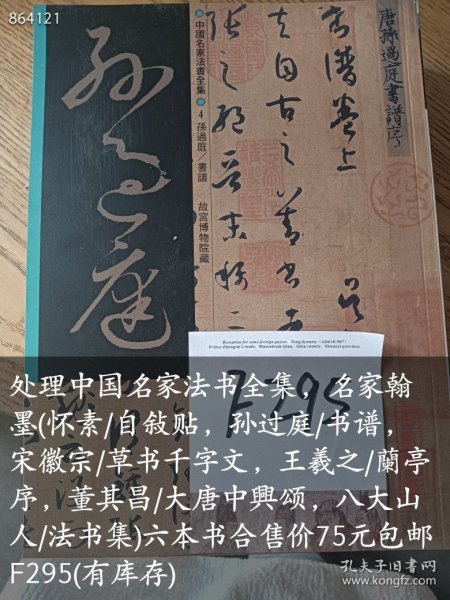 864121
唐孫過庭書譜序
書譜卷上
夫自古之善書者
漢魏有鍾張之絕晉末稱二
孫過庭
中國名家法書全集
4 孫過庭/書譜
故宮博物院藏
Reception for some foreign guests. Tang dynasty (AD618-907)
Prince Zhanghuai's tomb, Mausoleum Qian, Qian county, Shaanxi province
F295
处理中国名家法书全集，名家翰
墨(怀素/自敍贴，孙过庭/书谱，
宋徽宗/草书千字文，王羲之/蘭亭
序，董其昌/大唐中興颂，八大山
人/法书集)六本书合售价75元包邮
F295(有库存)
孔夫子旧书网
www.kongfz.com